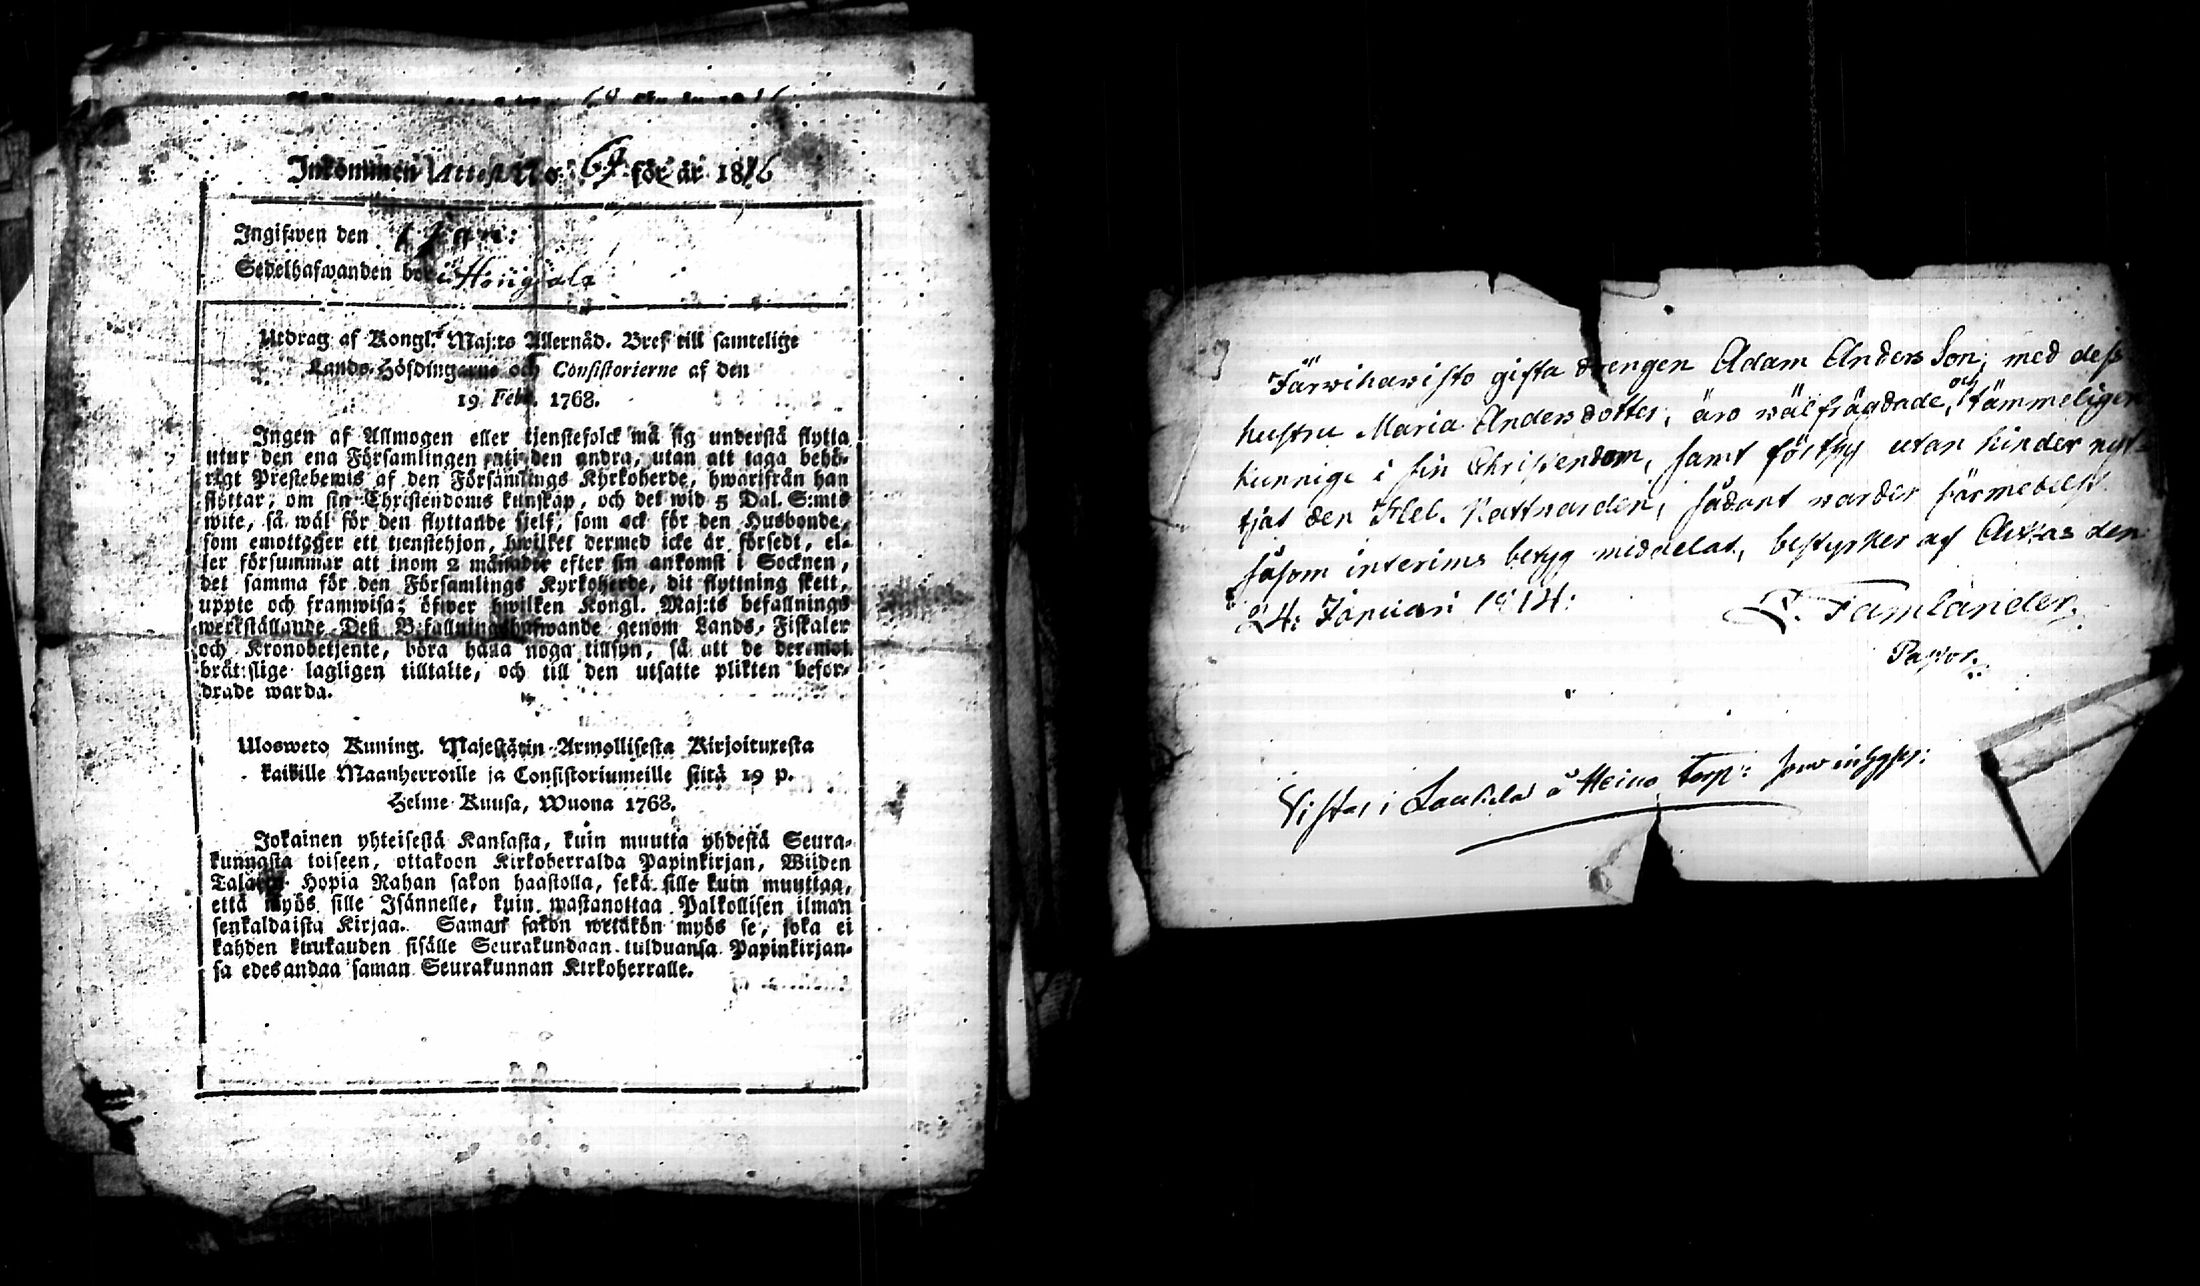 Inkommen Attest No 69 för år 1816
Ingifwen den 1 Jan:
Sedelhafwanden bor i Hongiola
Utdrag af Kongl. Maj:ts Allernåd. Bref till samtelige
Lands-Höfdingarne och Consistorierne af den
19 Febr. 1768.
Ingen af Allmogen eller tjenstefolck må sig understå flytta
utur den ena Församlingen uti den andra, utan att taga behö-
rigt Prestebewis af den Församlings Kyrkoherde, hwarifrån han
flyttar, om sin Christendoms kunskap, och det wid 5 Dal. S:mts
wite, så wäl för den flyttande sjelf, som ock för den Husbonde,
som emottager ett tjenstehjon, hwilket dermed icke är försedt, el-
ler försummar att inom 2 månader efter sin ankomst i Socknen,
det samma för den Församlings Kyrkoherde, dit flyttning skett,
uppte och framwisa; öfwer hwilken Kongl. Maj:ts befallnings
werkställande Deß Befallningshafwande genom Lands-Fiskaler
och Kronobetjente, böra hafwa noga tillsyn, så att de deremot
brätslige lagligen tilltalte, och till den utsatte plikten befor-
drade warda.
Ulosweto Kuning. Majestätin Armollisesta Kirjoituxesta
kaikille Maanherroille ja Consistoriumeille siitä 19 p.
Helme Kuusa, Wuona 1768.
Jokainen yhteisestä Kansasta, kuin muutta yhdestä Seura-
kunnasta toiseen, ottakoon Kirkoherralda Papinkirjan, Wiiden
Talarin Hopia Rahan sakon haastolla, sekä sille kuin muuttaa,
että myös sille Isännelle, kuin wastanottaa Palkollisen ilman
senkaldaista Kirjaa. Saman sakon wetäkön myös se, joka ei
kahden kuukauden sisälle Seurakundaan tulduansa Papinkirjan-
sa edesandaa saman Seurakunnan Kirkoherralle.
Färwihawisto gifta drengen Adam Anders Son, med dess
hustru Maria Andersdotter, äro wälfrägdade, och tämmeligen
kunnige i sin Christendom, samt förthy utan hinder nyt-
tjat den Hel. Nattvarden, sådant warder härmedelst
såsom interims betyg meddelat, bestyrker af Askas den
24: Januari 1814:
Famlander.
Pastor.
Vistas i å Heino Torp: som inhyses: